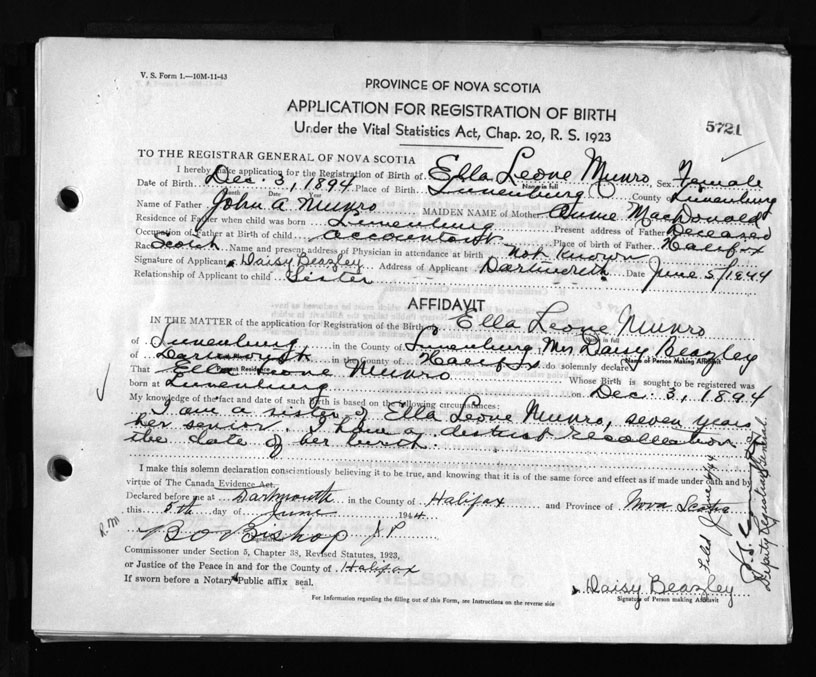 V. S. Form 1.—10M-11-43
PROVINCE OF NOVA SCOTIA
APPLICATION FOR REGISTRATION OF BIRTH
5721
Under the Vital Statistics Act, Chap. 20, R. S. 1923
TO THE REGISTRAR GENERAL OF NOVA SCOTIA
I hereby make application for the Registration of Birth of Ella Leone Munro, Sex Female
Name in full
Date of Birth Dec. 3, 1894 Place of Birth Lunenburg County of Lunenburg
Month Date Year
Name of Father John A Munro MAIDEN NAME of Mother Annie MacDonald
Residence of Father when child was born Lunenburg Present address of Father Deceased
Occupation of Father at Birth of child accountant Place of birth of Father Halifax
Race Scotch Name and present address of Physician in attendance at birth not known
Signature of Applicant Daisy Beazley Address of Applicant Dartmouth Date June 5/1944
Relationship of Applicant to child Sister
AFFIDAVIT
IN THE MATTER of the application for Registration of the Birth of Ella Leone Munro
Name in full
of Lunenburg, in the County of Lunenburg Mrs Daisy Beazley
Name of Person Making Affidavit
of Dartmouth in the County of Halifax do solemnly declare
Present Residence
That Ella Leone Munro Whose Birth is sought to be registered was
born at Lunenburg on Dec. 3, 1894
My knowledge of the fact and date of such birth is based on the following circumstances:
I am a sister of Ella Leone Munro, seven years
her senior. I have a distinct recollection of
the date of her birth.
I make this solemn declaration conscientiously believing it to be true, and knowing that it is of the same force and effect as if made under oath and by
virtue of The Canada Evidence Act.
Declared before me at Dartmouth in the County of Halifax and Province of Nova Scotia
this 5th day of June 1944
B O Bishop J P
Commissioner under Section 5, Chapter 38, Revised Statutes, 1923,
or Justice of the Peace in and for the County of Halifax
If sworn before a Notary Public affix seal.
Daisy Beazley
Signature of Person making Affidavit
For Information regarding the filling out of this Form, see Instructions on the reverse side
Deputy Registrar General.